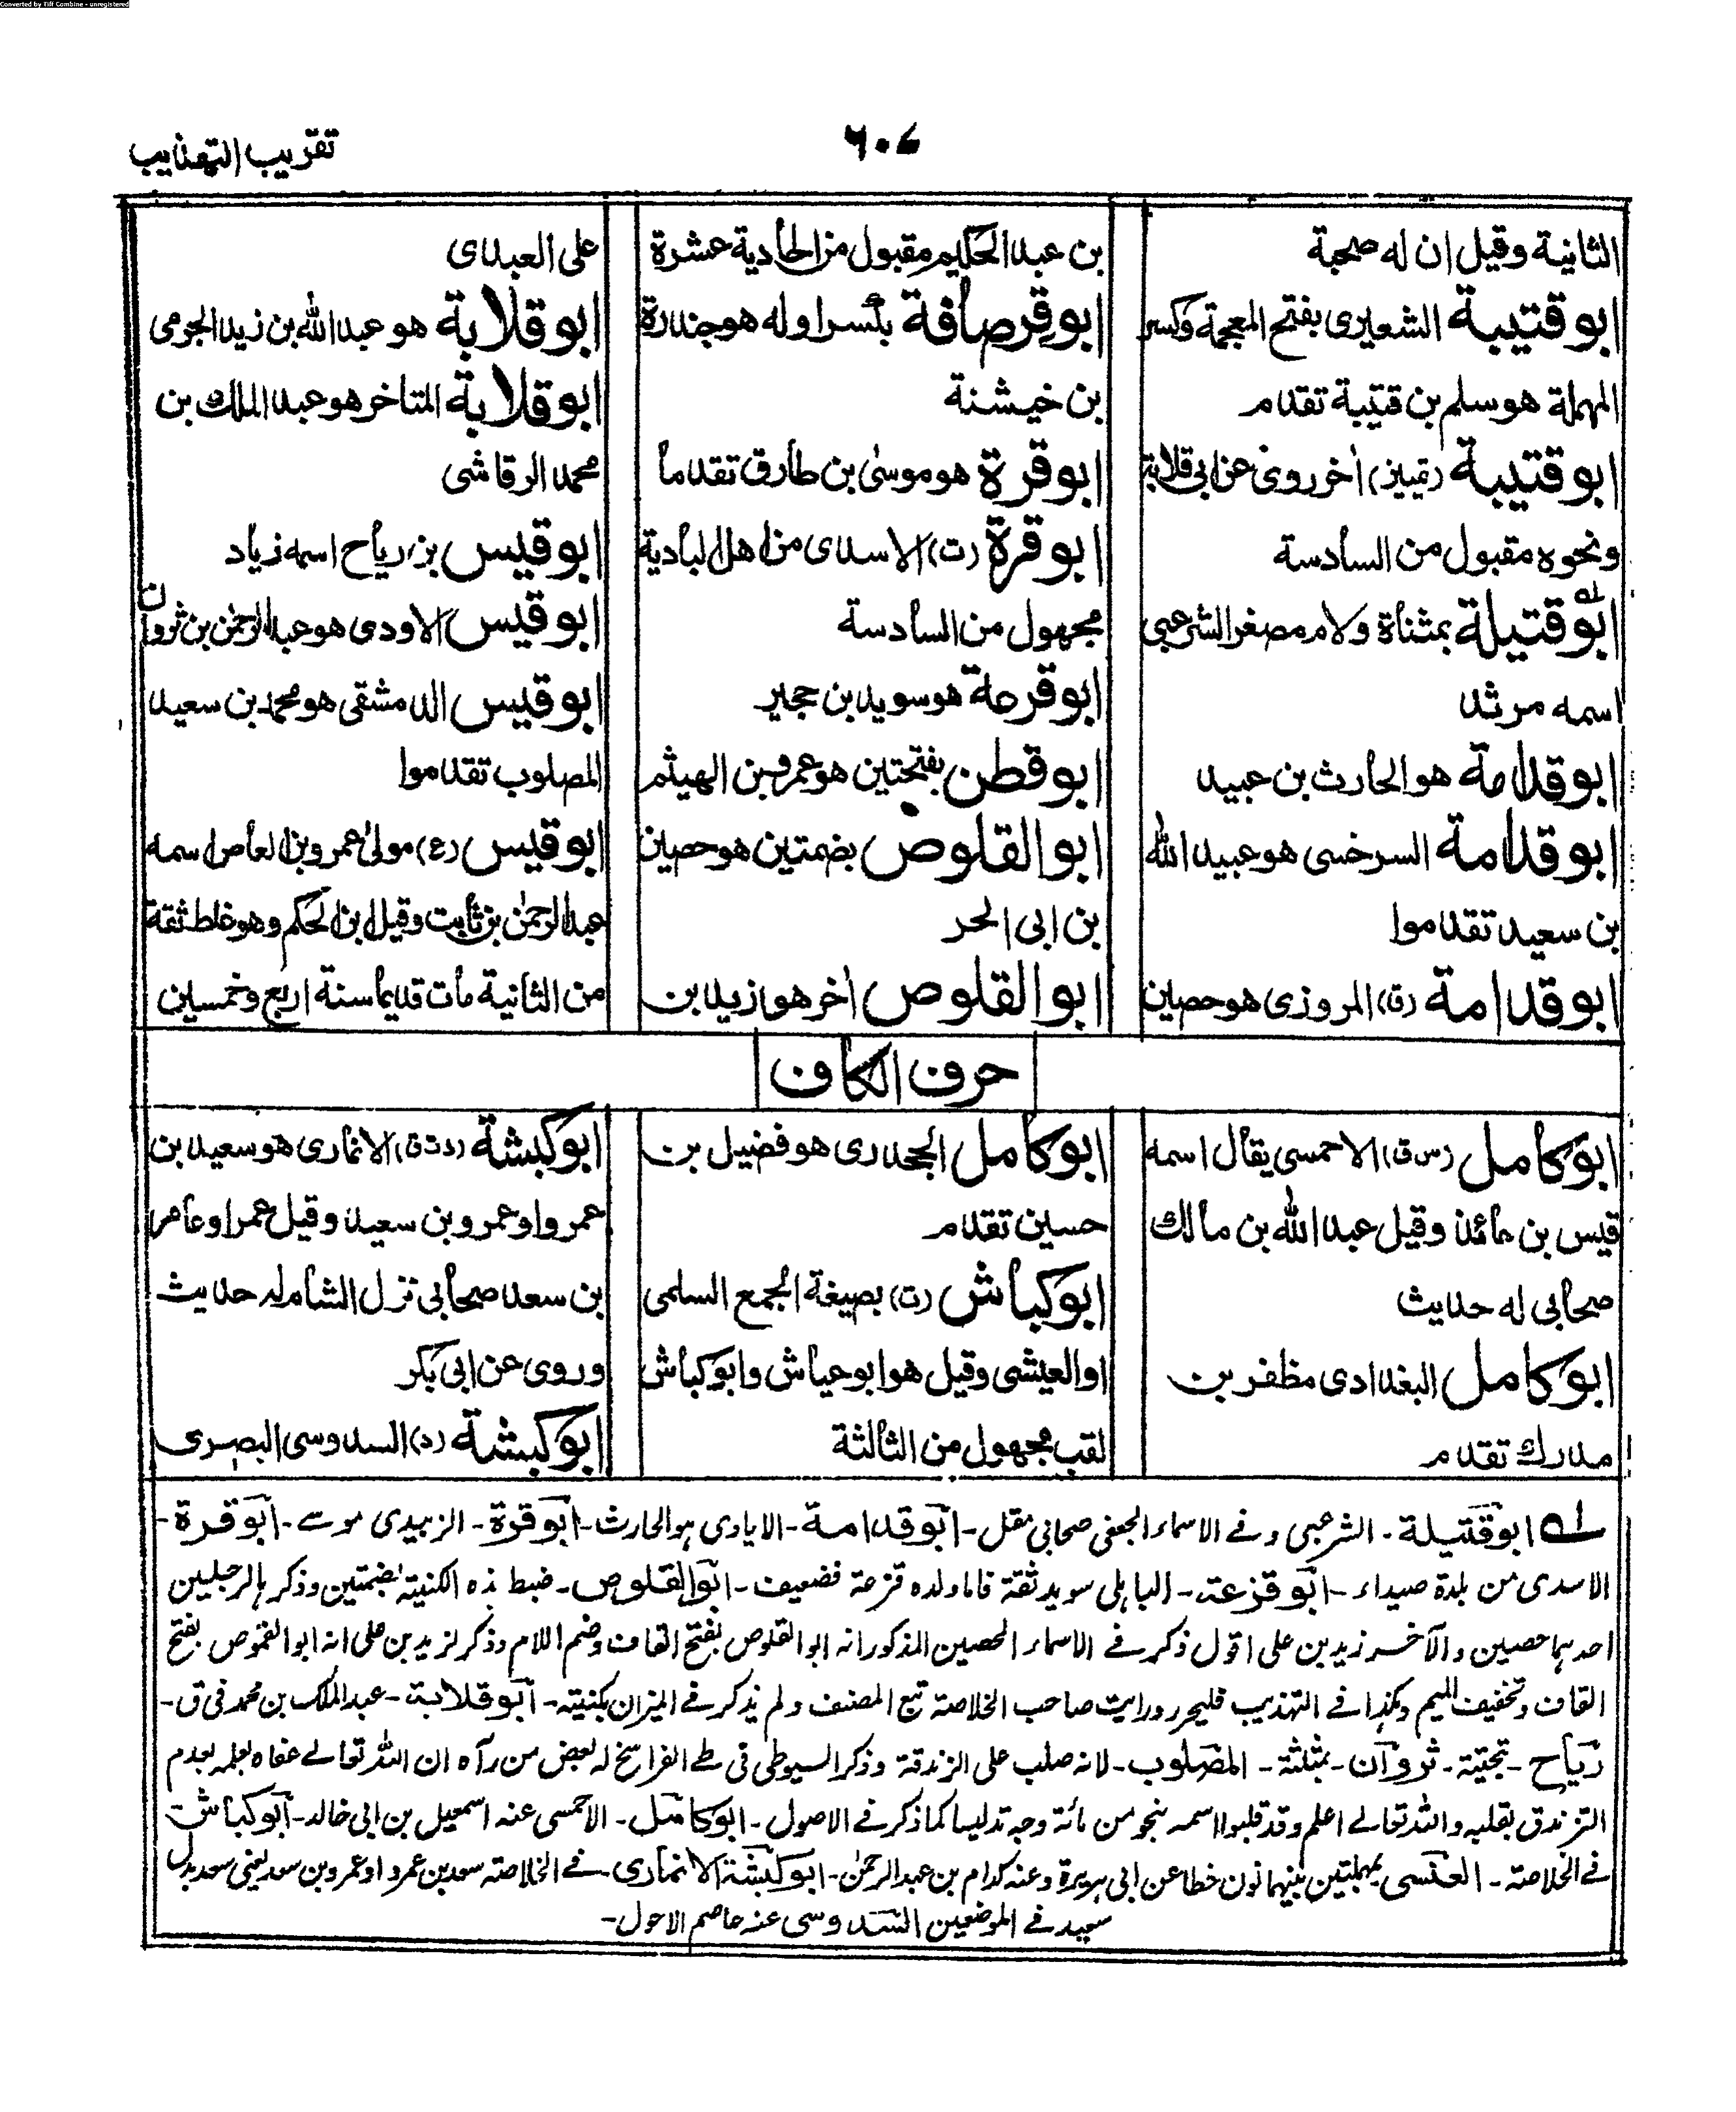 Converted by Tiff Combine - unregistered
تقريب التهذيب
٦٠٧
الثانية وقيل ان له صحبة
ابو قتيبة الشعيرى بفتح المعجمة وكسر
المهملة هو سلم بن قتيبة تقدم
ابو قتيبة (تمييز) اخر روى عن ابى قلابة
ونحوه مقبول من السادسة
ابو قتيلة بمثناة ولام مصغر الشرعبى
اسمه مرثد
ابو قدامة هو الحارث بن عبيد
ابو قدامة السرخسى هو عبيد الله
بن سعيد تقدموا
ابو قدامة (ق) المروزى هو حصين
بن عبد الحكيم مقبول من الحادية عشرة
ابو قرصافة بكسر اوله هو جندرة
بن خيشنة
ابو قرة هو موسى بن طارق تقدما
ابو قرة (ت) الاسدى من اهل البادية
مجهول من السادسة
ابو قزعة هو سويد بن حجير
ابو قطن بفتحتين هو عمرو بن الهيثم
ابو القلوص بضمتين هو حصين
بن ابى الحر
ابو القلوص اخر هو زيد بن
على العبدى
ابو قلابة هو عبد الله بن زيد الجرمى
ابو قلابة المتاخر هو عبد الملك بن
محمد الرقاشى
ابو قيس بن رياح اسمه زياد
ابو قيس الاودى هو عبد الرحمن بن ثروان
ابو قيس الدمشقى هو محمد بن سعيد
المصلوب تقدموا
ابو قيس (ع) مولى عمرو بن العاص اسمه
عبد الرحمن بن ثابت وقيل ابن الحكم وهو غلط ثقة
من الثانية مات قديما سنة اربع وخمسين
حرف الكاف
ابو كامل (س ق) الاحمسى يقال اسمه
قيس بن عائذ وقيل عبد الله بن مالك
صحابى له حديث
ابو كامل البغدادى مظفر بن
مدرك تقدم
ابو كامل الجحدرى هو فضيل بن
حسين تقدم
ابو كباش (ت) بصيغة الجمع السلمى
او العيشى وقيل هو ابو عياش وابو كباش
لقب مجهول من الثالثة
ابو كبشة (د ت ق) الانمارى هو سعيد بن
عمرو او عمرو بن سعيد وقيل عمر او عامر
بن سعد صحابى نزل الشام له حديث
وروى عن ابى بكر
ابو كبشة (د) السدوسى البصرى
له ابو قتيلة ـ الشرعبى و فے الاسماء الجعفى صحابى مقل ـ ابو قدامة ـ الايادى ہو الحارث ـ ابو قرة ـ الزبيدى موسے ـ ابو قرة ـ
الاسدى من بلدة صيداء ـ ابو قزعة ـ الباہلى سويد ثقة فاما ولده قزعة فضعيف ـ ابو القلوص ـ ضبط ہذه الكنية بضمتين وذكر بہا رجلين
احدہما حصين والآخر زيد بن على اقول ذكر فے الاسماء الحصين المذكور انہ ابو القلوص بفتح القاف وضم اللام وذكر لزيد بن على انہ ابو القموص بفتح
القاف وتخفيف الميم وہكذا فے التہذيب فليحرر ورايت صاحب الخلاصة تبع المصنف ولم يذكر فے الميزان بكنيتہ ـ ابو قلابة ـ عبد الملك بن محمد فى ق ـ
رياح ـ تحتية ـ ثروان ـ بمثلثة ـ المصلوب ـ لانہ صلب على الزندقة وذكر السيوطى فى طے الفراسخ لہ لبعض من رآه ان اللہ تعالے عفاه لعلمہ بعدم
التزندق بقلبہ واللہ تعالے اعلم وقد قلبوا اسمہ بنحو من مائة وجہ تدليسا كما ذكر فے الاصول ـ ابو كامل ـ الاحمسى عنہ اسمعيل بن ابى خالد ـ ابو كباش
فے الخلاصة ـ العنسى بمہملتين بينہما نون خطا عن ابى ہريرة وعنہ كدام بن عبد الرحمن ـ ابو كبشة الانمارى ـ فے الخلاصة سعد بن عمرو او عمرو بن سعد يعنى سعد بدل
سعيد فے الموضعين السدوسى عنہ عاصم الاحول ـ